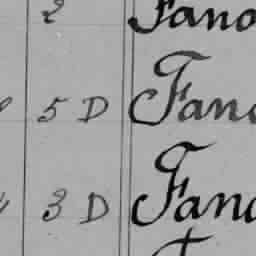 2 Fano
5 D Fano
3 D Fano